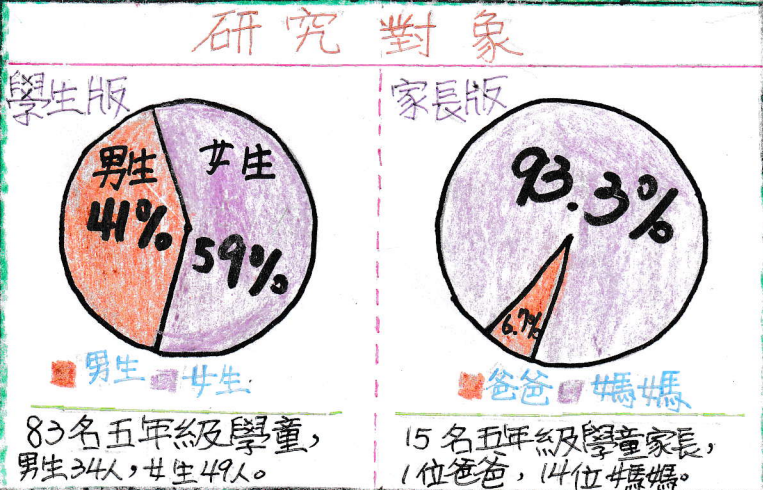 研究對象
學生版
男生
41%
女生
59%
男生 女生
83名五年級學童,
男生34人,女生49人。
家長版
93.3%
6.7%
爸爸 媽媽
15名五年級學童家長,
1位爸爸,14位媽媽。